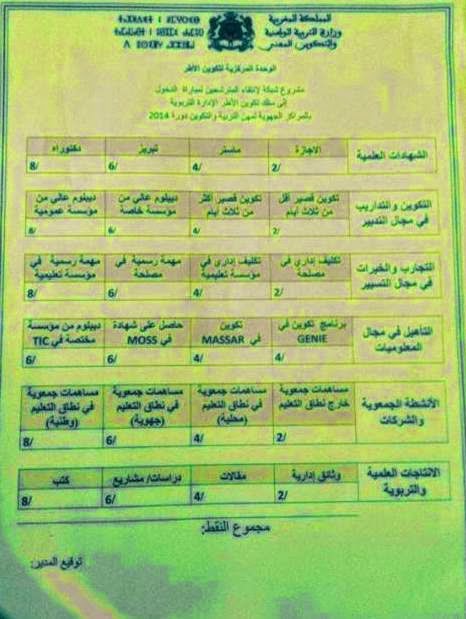 المملكة المغربية
وزارة التربية الوطنية
والتكوين المهني
الوحدة المركزية لتكوين الأطر
مشروع شبكة لانتقاء المترشحين لمباراة الدخول
إلى سلك تكوين الأطر الإدارة التربوية
بالمراكز الجهوية لمهن التربية والتكوين دورة 2014
الشهادات العلمية
الاجازة ماستر تبريز دكتوراه
2/ 4/ 6/ 8/
التكوين والتداريب
في مجال التدبير
تكوين قصير أقل من ثلاث أيام
تكوين قصير أكثر من ثلاث أيام
ديبلوم عالي من مؤسسة خاصة
ديبلوم عالي من مؤسسة عمومية
2/ 4/ 6/ 8/
التجارب والخبرات
في مجال التسيير
تكليف إداري في مصلحة
تكليف إداري في مؤسسة تعليمية
مهمة رسمية في مصلحة
مهمة رسمية في مؤسسة تعليمية
2/ 4/ 6/ 8/
التأهيل في مجال
المعلوميات
برنامج تكوين في GENIE
تكوين في MASSAR
حاصل على شهادة MOSS
ديبلوم من مؤسسة مختصة في TIC
2/ 4/ 6/ 6/
الأنشطة الجمعوية
والشركات
مساهمات جمعوية خارج نطاق التعليم
مساهمات جمعوية في نطاق التعليم (محلية)
مساهمات جمعوية في نطاق التعليم (جهوية)
مساهمات جمعوية في نطاق التعليم (وطنية)
2/ 4/ 6/ 8/
الانتاجات العلمية
والتربوية
وثائق إدارية مقالات دراسات/ مشاريع كتب
2/ 4/ 6/ 8/
مجموع النقط:
توقيع المدير: